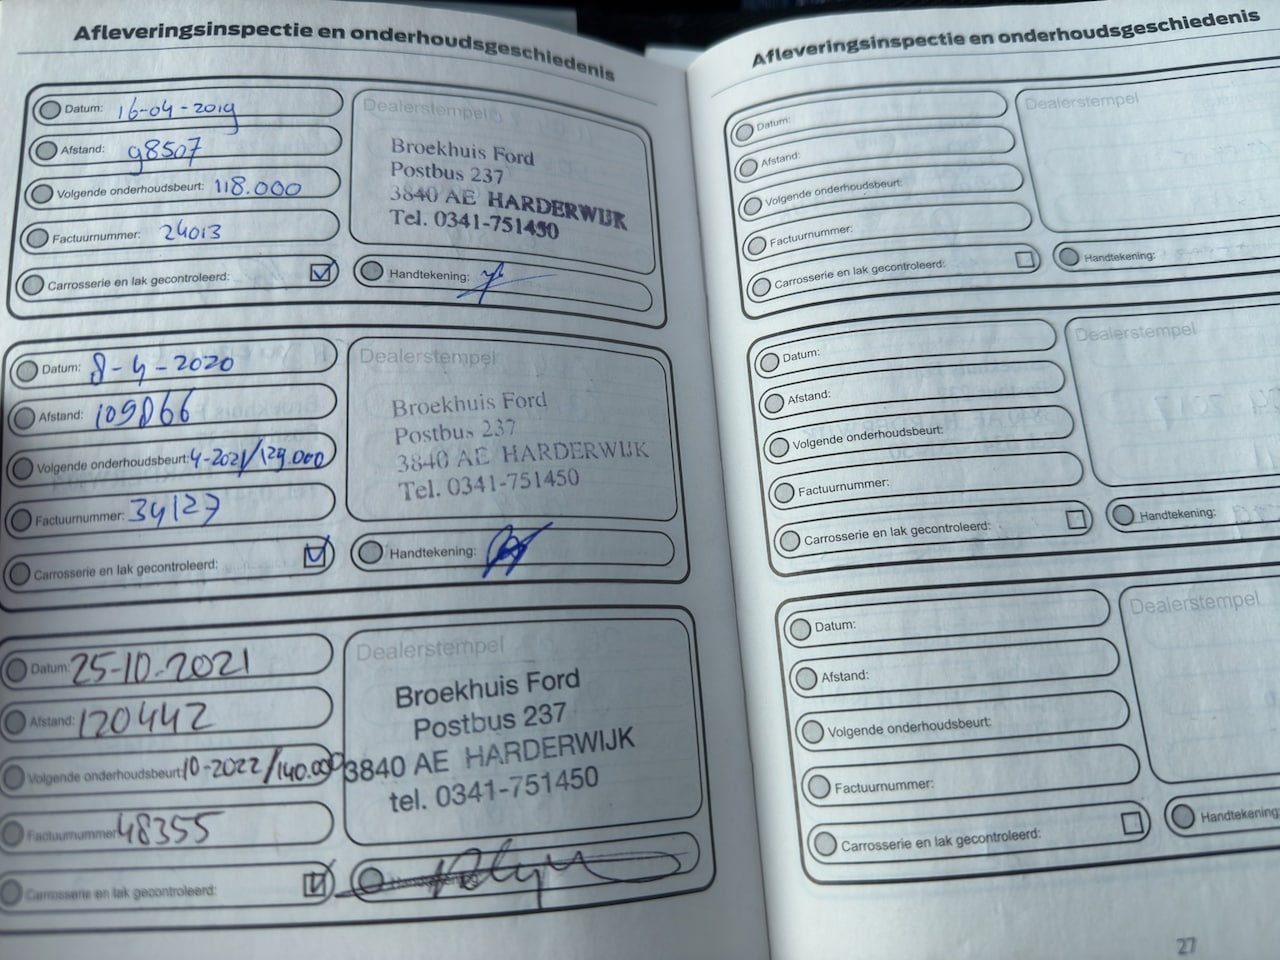 Afleveringsinspectie en onderhoudsgeschiedenis
Datum: 16-04-2019
Afstand: 98507
Volgende onderhoudsbeurt: 118.000
Factuurnummer: 24013
Carrosserie en lak gecontroleerd:
Dealerstempel
Broekhuis Ford
Postbus 237
3840 AE HARDERWIJK
Tel. 0341-751450
Handtekening:
Datum: 8-4-2020
Afstand: 109866
Volgende onderhoudsbeurt: 4-2021/129.000
Factuurnummer: 34127
Carrosserie en lak gecontroleerd:
Dealerstempel
Broekhuis Ford
Postbus 237
3840 AE HARDERWIJK
Tel. 0341-751450
Handtekening:
Datum: 25-10-2021
Afstand: 120442
Volgende onderhoudsbeurt: 10-2022/140.000
Factuurnummer: 48355
Carrosserie en lak gecontroleerd:
Dealerstempel
Broekhuis Ford
Postbus 237
3840 AE HARDERWIJK
tel. 0341-751450
Handtekening:
Afleveringsinspectie en onderhoudsgeschiedenis
Datum:
Afstand:
Volgende onderhoudsbeurt:
Factuurnummer:
Carrosserie en lak gecontroleerd:
Dealerstempel
Handtekening:
Datum:
Afstand:
Volgende onderhoudsbeurt:
Factuurnummer:
Carrosserie en lak gecontroleerd:
Dealerstempel
Handtekening:
Datum:
Afstand:
Volgende onderhoudsbeurt:
Factuurnummer:
Carrosserie en lak gecontroleerd:
Dealerstempel
Handtekening:
27